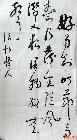 好雨知时节当
春乃發生随风
潜入夜润物细
無声